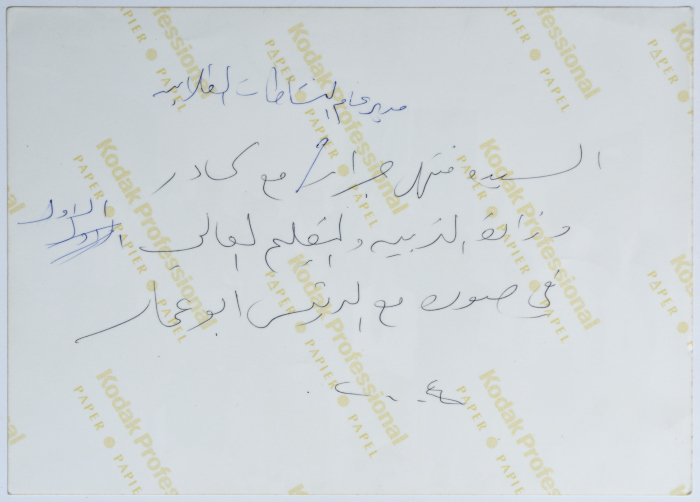 مدير عام النشاطات الطلابية
السيده منتهى جرار مع كادر
وزارة التربيه والتعليم العالي
الاولى
في صوره مع الرئيس ابو عمار
Kodak Professional
PAPER • PAPER